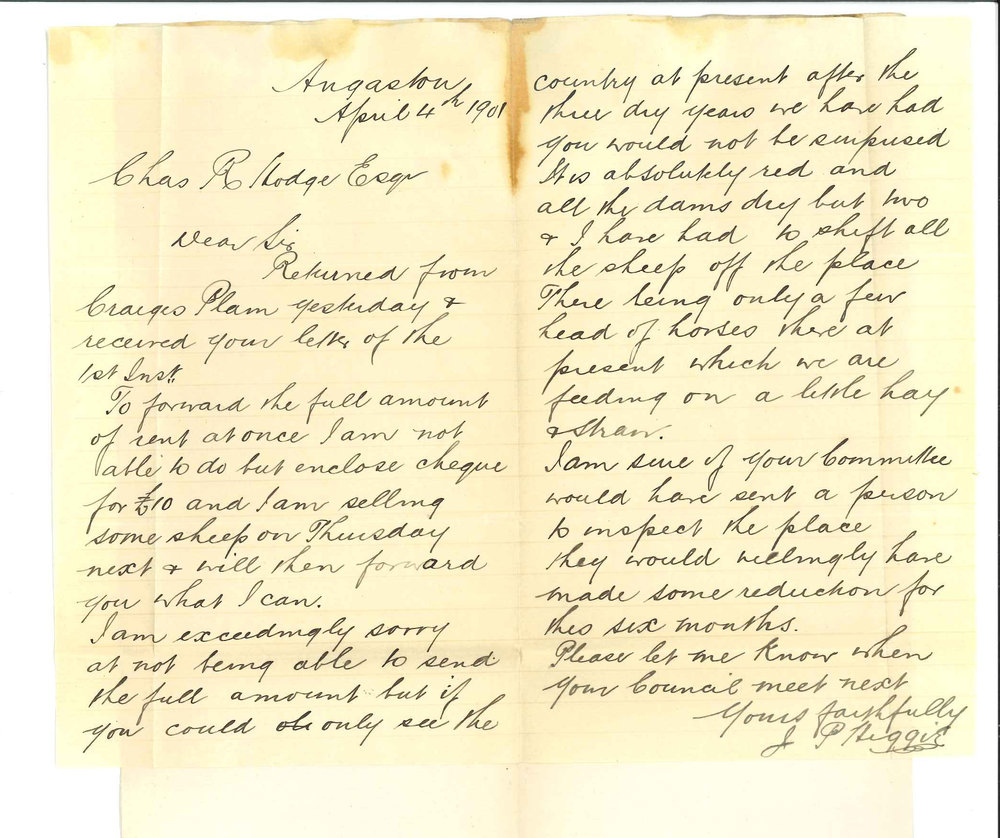 Angaston
April 4th 1901
Chas R Hodge Esqr
Dear Sir
Returned from
Craiges Plain yesterday &
received your letter of the
1st Inst.
To forward the full amount
of rent at once I am not
able to do but enclose cheque
for £10 and I am selling
some sheep on Thursday
next & will then forward
you what I can.
I am exceedingly sorry
at not being able to send
the full amount but if
you could only see the
country at present after the
three dry years we have had
you would not be surprised
It is absolutely red and
all the dams dry but two
& I have had to shift all
the sheep off the place
There being only a few
head of horses there at
present which we are
feeding on a little hay
& straw.
I am sure if your Committee
would have sent a person
to inspect the place
they would willingly have
made some reduction for
this six months.
Please let me know when
your Council meet next
Yours faithfully
J P Higgie